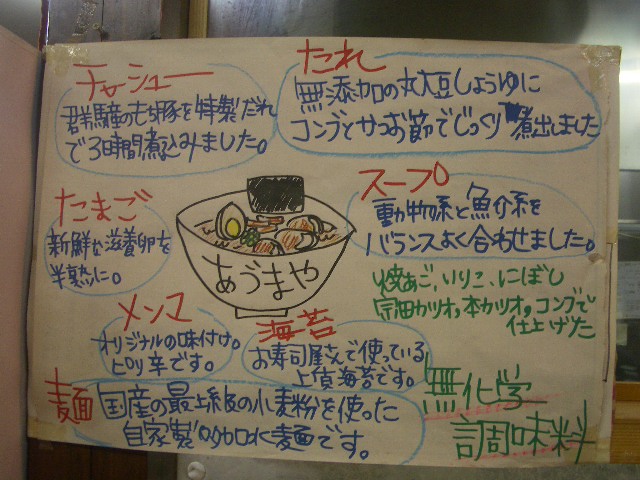 チャーシュー
群馬産のもち豚を特製だれ
で3時間煮込みました。
たれ
無添加の丸大豆しょうゆに
コンブとかつお節でじっくり煮出しました
たまご
新鮮な滋養卵を
半熟に。
あづまや
スープ
動物系と魚介系を
バランスよく合わせました。
焼あご、いりこ、にぼし
宗田カツオ、本カツオ、コンブで
仕上げた
メンマ
オリジナルの味付け。
ピリ辛です。
海苔
お寿司屋さんで使っている
上質海苔です。
麺
国産の最上級の小麦粉を使った
自家製多加水麺です。
無化学
調味料